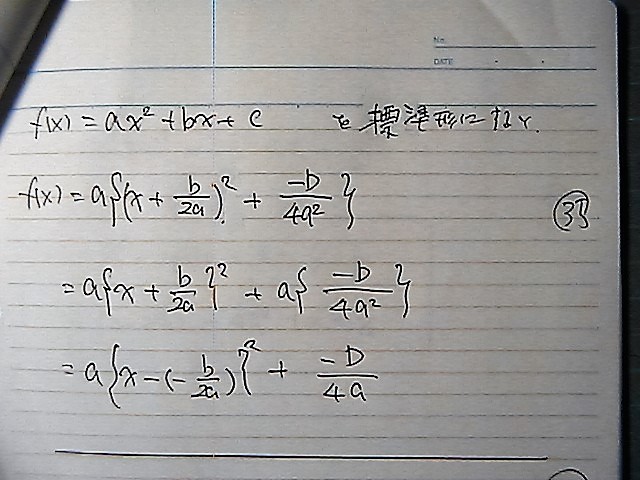 No.
DATE
f(x) = ax² + bx + c を標準形に
f(x) = a{(x + b/2a)² + -D/4a²}
= a{x + b/2a}² + a{-D/4a²}
= a{x - (-b/2a)}² + -D/4a